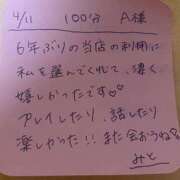 4/11 100分 A様
6年ぶりの当店の利用に
私を選んでくれて、凄く
嬉しかったです♡
プレイしたり、話したり
楽しかった!!また会おうね♡
みと